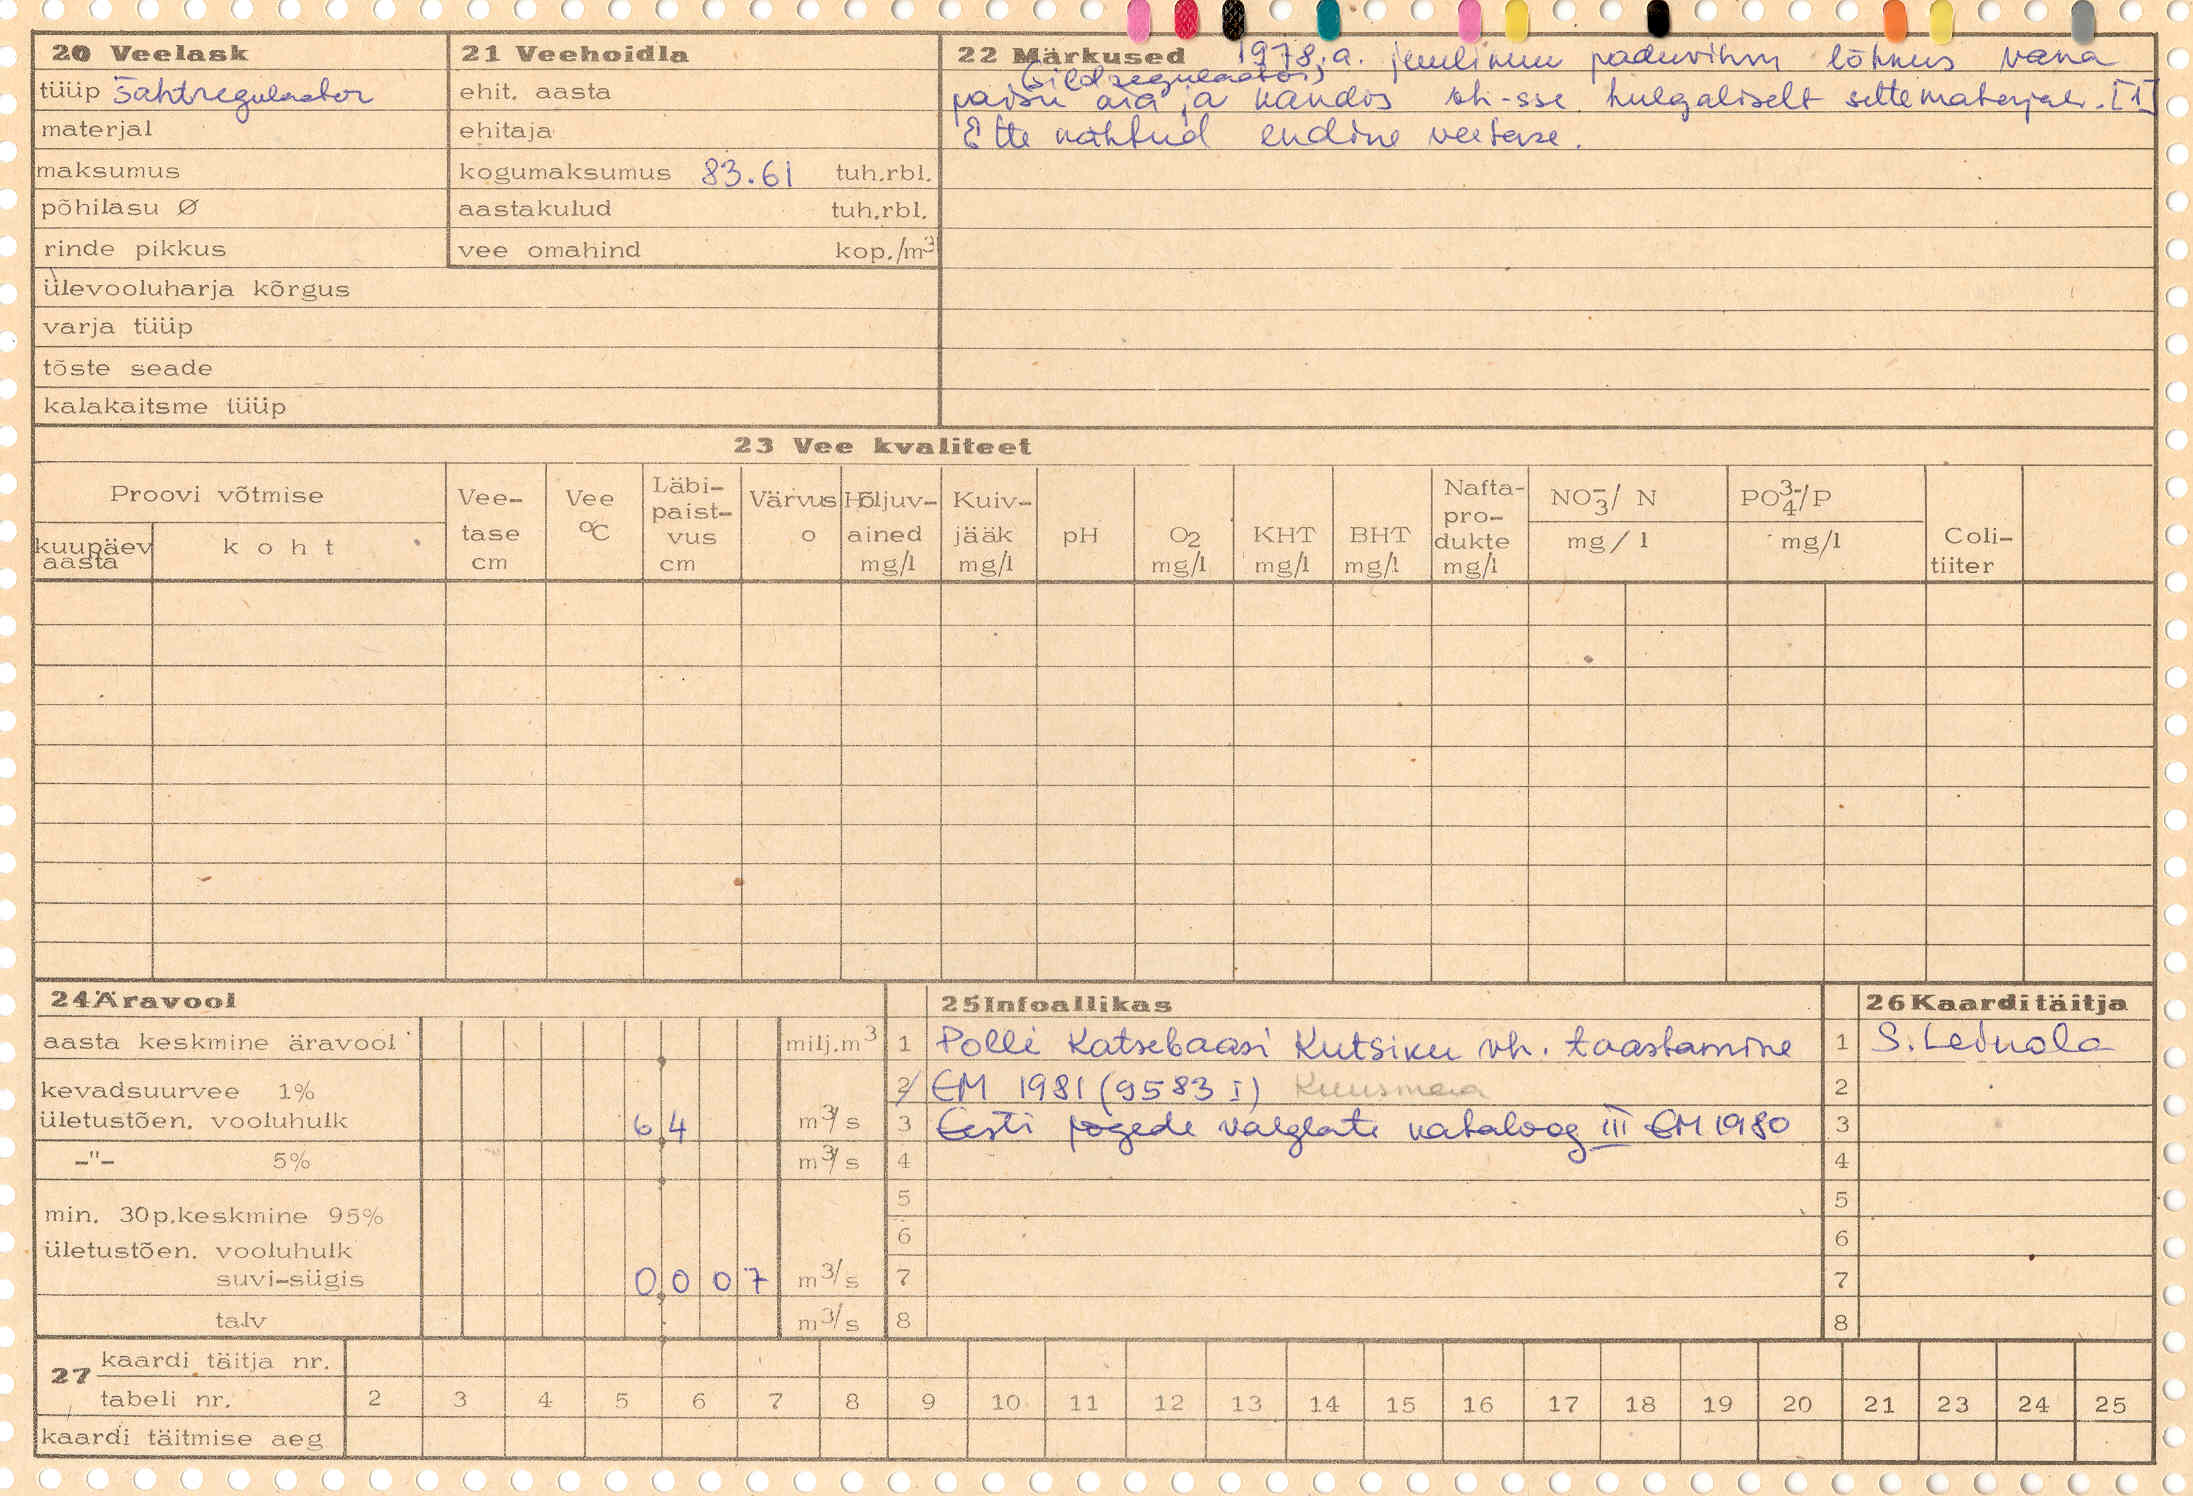 20 Veelask
tüüp Šahtregulaator
materjal
maksumus
põhilasu Ø
rinde pikkus
ülevooluharja kõrgus
varja tüüp
tõste seade
kalakaitsme tüüp
21 Veehoidla
ehit. aasta
ehitaja
kogumaksumus 83.61 tuh.rbl.
aastakulud tuh.rbl.
vee omahind kop./m³
22 Märkused 1978.a. juulikuu paduvihm lõhkus vana
(sildregulaator)
paisu ära ja kandis vh-sse hulgaliselt settematerjali. [1]
Ette nähtud endine veetase.
23 Vee kvaliteet
Proovi võtmise
kuupäev aasta
koht
Vee-tase cm
Vee °C
Läbi-paist-vus cm
Värvus o
Hõljuv-ained mg/l
Kuiv-jääk mg/l
pH
O2 mg/l
KHT mg/l
BHT mg/l
Nafta-pro-dukte mg/l
NO3-/ N mg/l
PO4 3-/P mg/l
Coli-tiiter
24 Äravool
aasta keskmine äravool milj.m³
kevadsuurvee 1%
ületustõen. vooluhulk 64 m³/s
-"- 5% m³/s
min. 30p.keskmine 95%
ületustõen. vooluhulk
suvi-sügis 0007 m³/s
talv m³/s
25 Infoallikas
1 Polli Katsebaasi Kutsiku vh. taastamine
2 EM 1981 (9583 I) Kuusmaa
3 Eesti jõgede valglate kataloog III EM 1980
4
5
6
7
8
26 Kaardi täitja
1 S. Leinola
2
3
4
5
6
7
8
27 kaardi täitja nr.
tabeli nr. 2 3 4 5 6 7 8 9 10 11 12 13 14 15 16 17 18 19 20 21 23 24 25
kaardi täitmise aeg